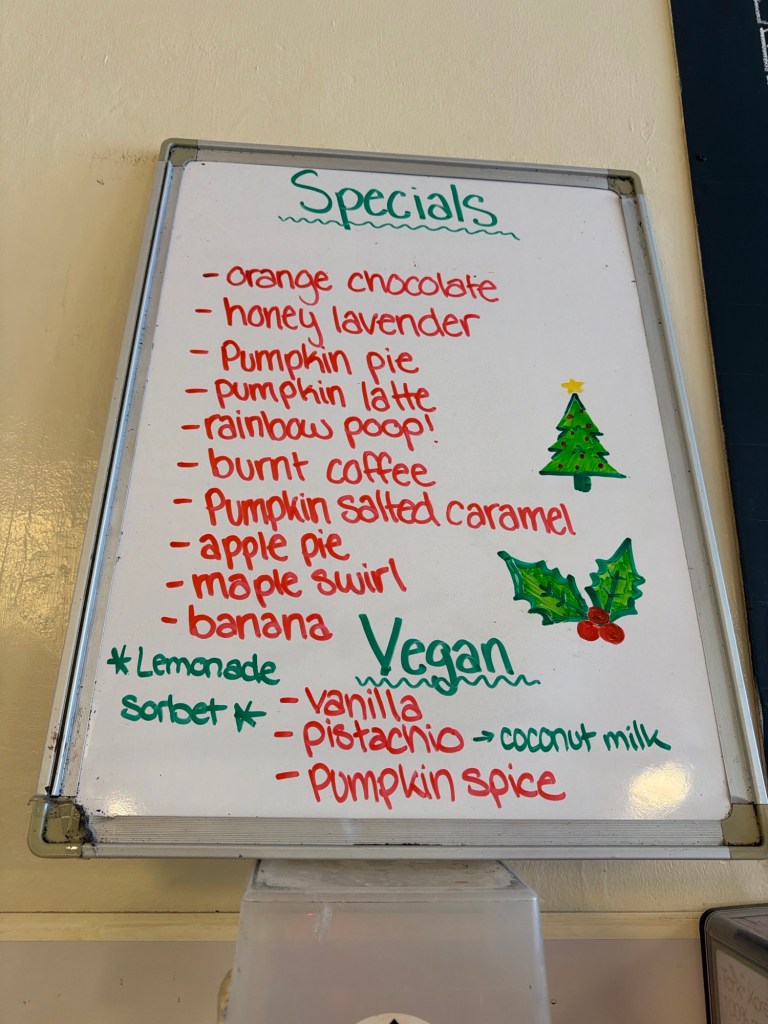 Specials
- orange chocolate
- honey lavender
- Pumpkin pie
- pumpkin latte
- rainbow poop!
- burnt coffee
- Pumpkin salted caramel
- apple pie
- maple swirl
- banana
Vegan
* Lemonade
sorbet *
- vanilla
- pistachio → coconut milk
- Pumpkin spice